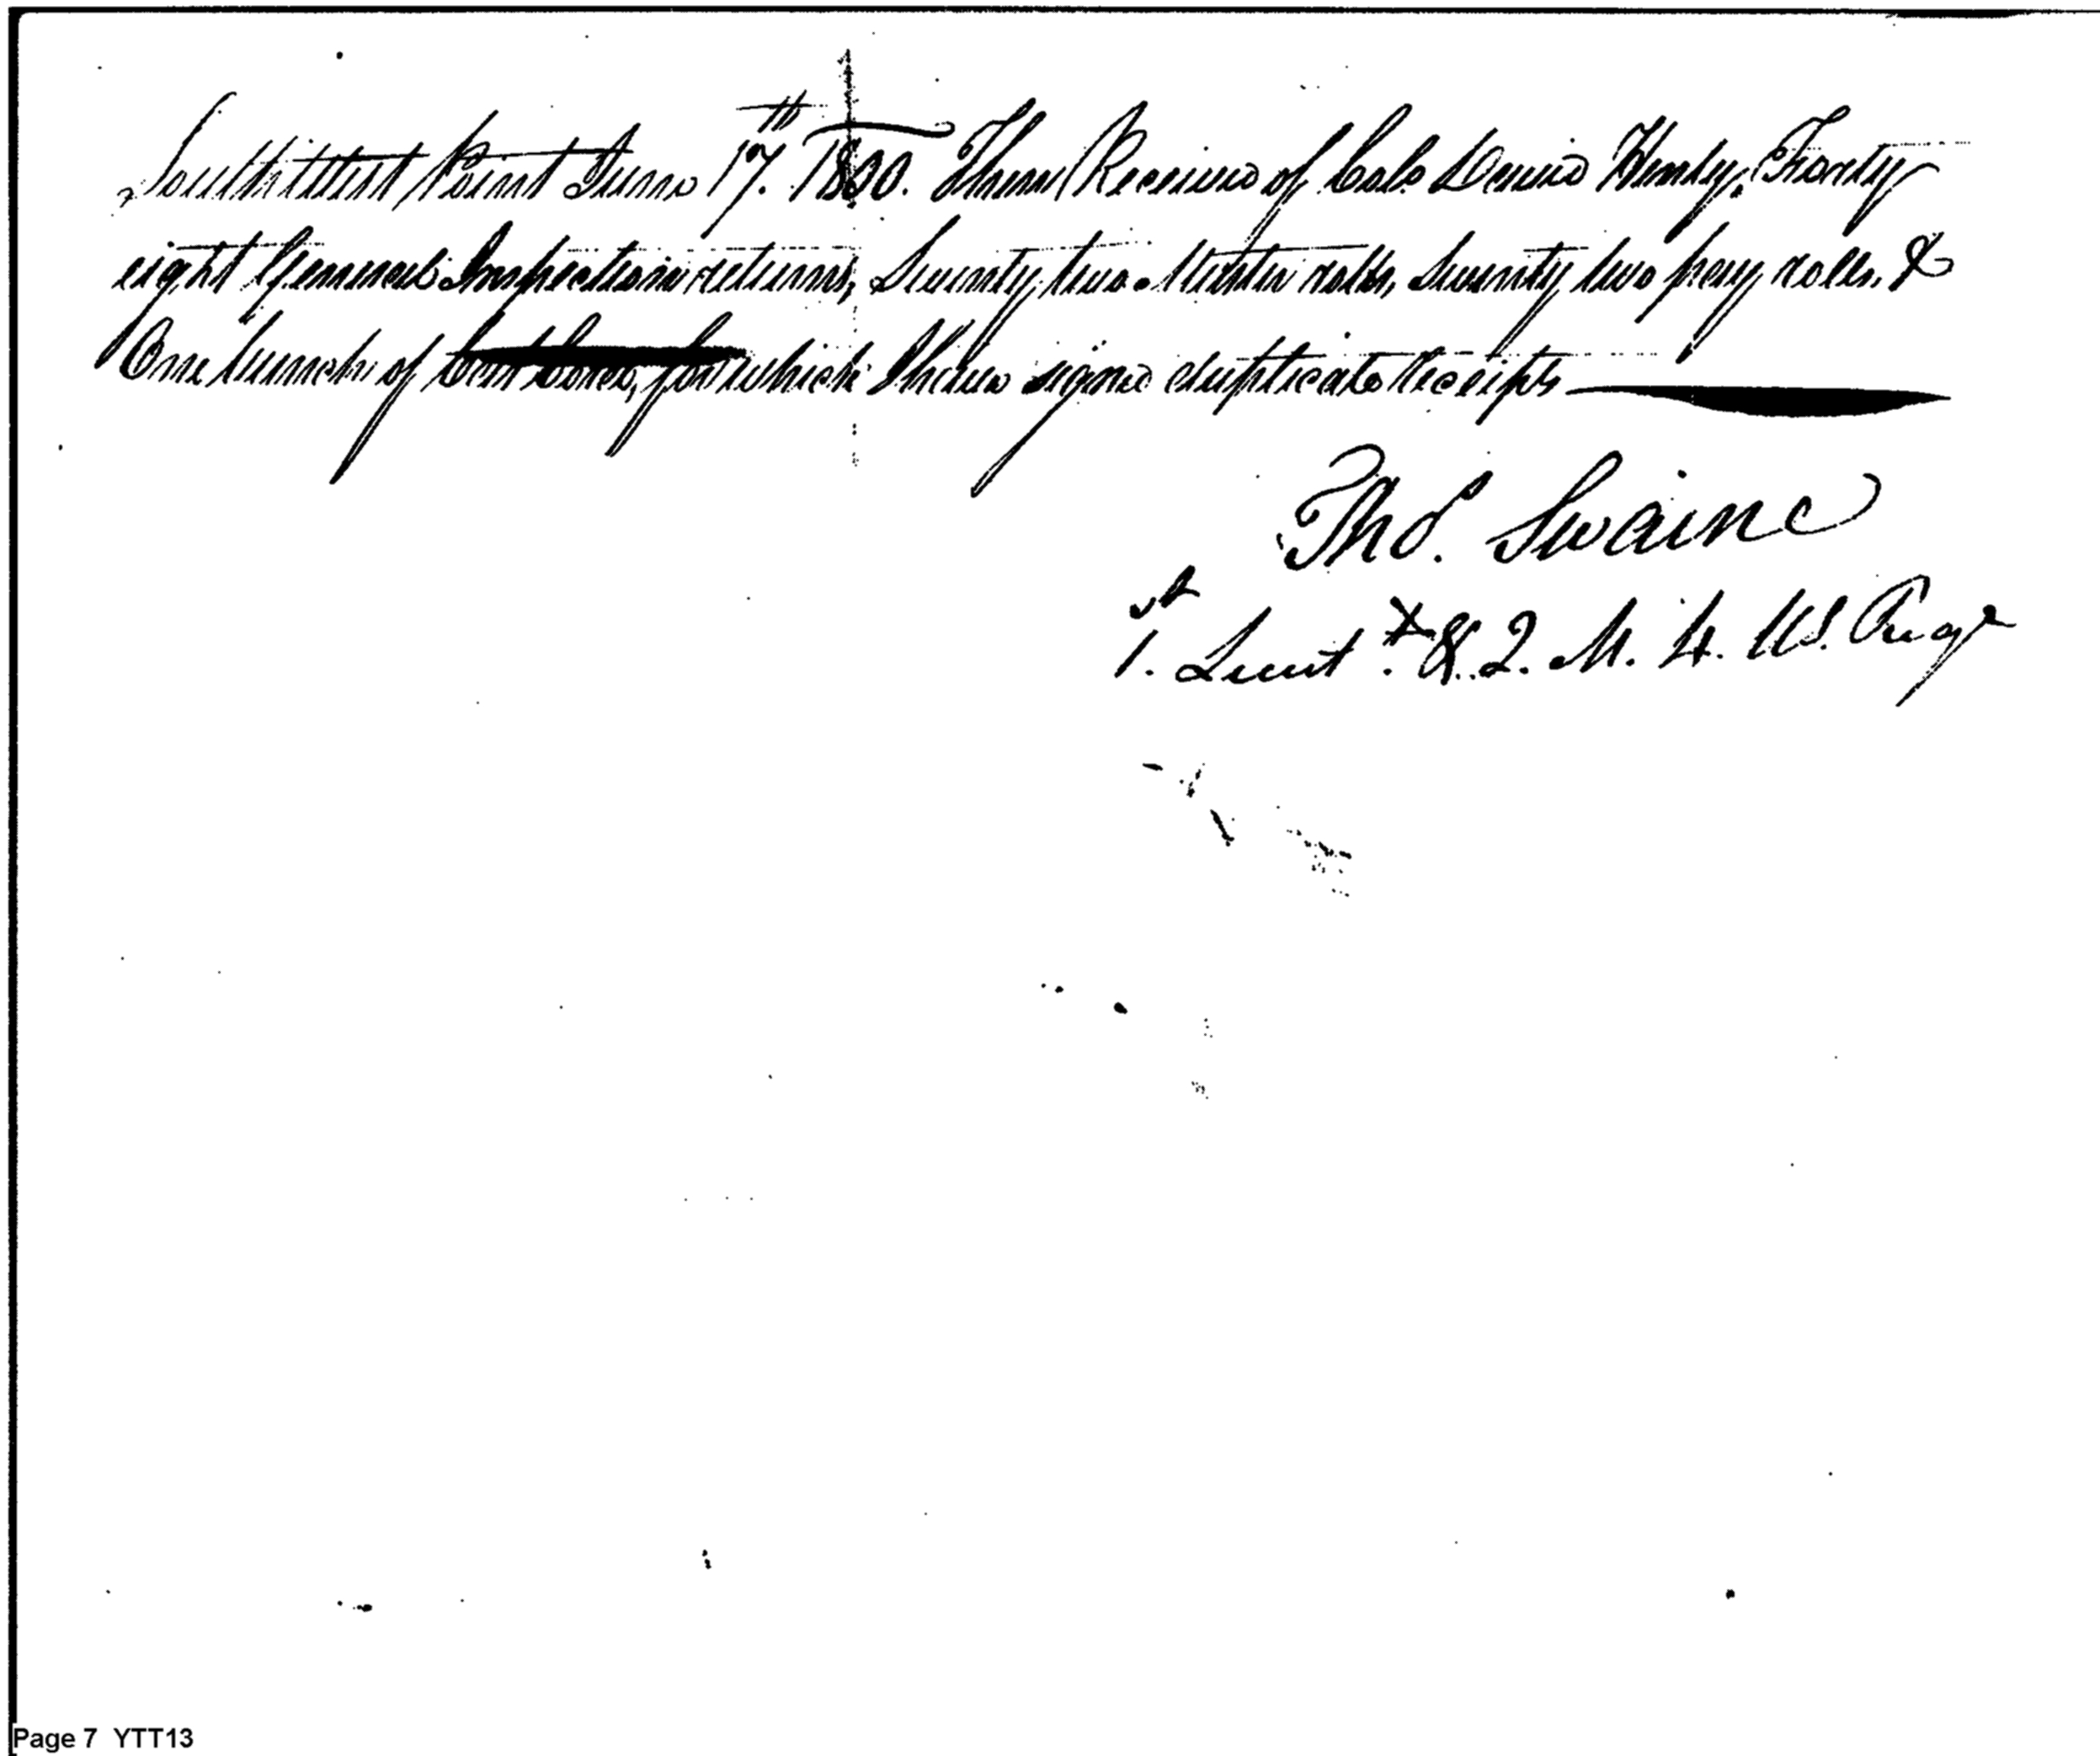 South West Point June 17th. 1800. I have Received of Colo David Henley, Forty
eight General Inspection returns, Seventy two Muster rolls, Seventy two pay rolls, &
One bunch of for which I have signed duplicate Receipts
Thos. Swaine
1st. Lieut. & Q. M. 4. US. Regt
Page 7 YTT13